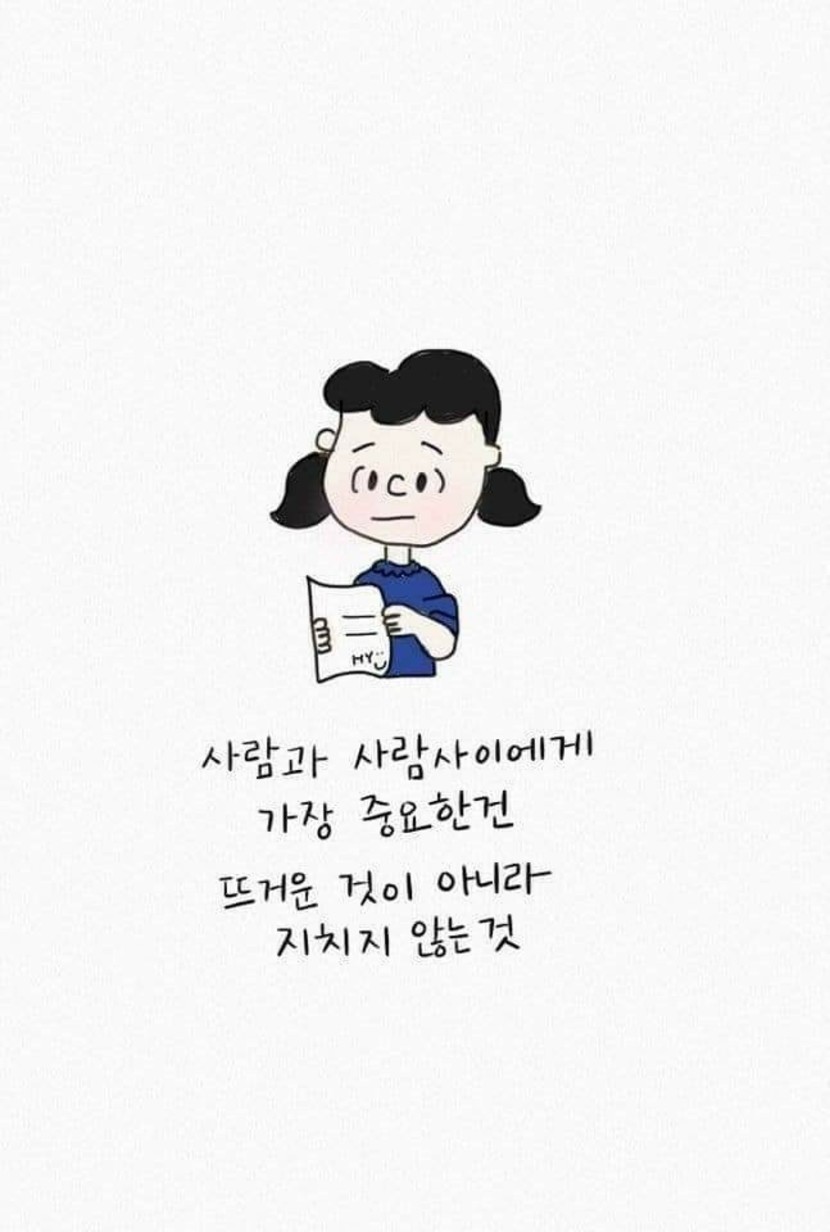 HY
사람과 사람사이에게
가장 중요한건
뜨거운 것이 아니라
지치지 않는것